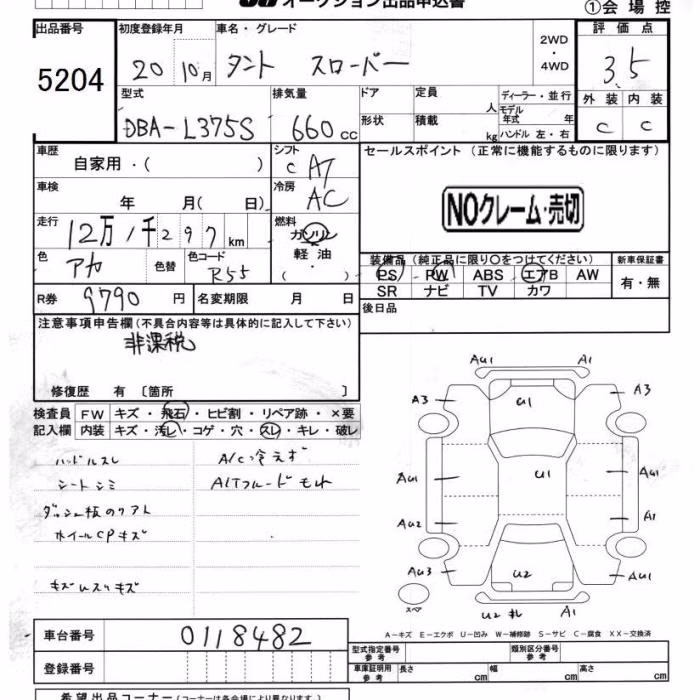 オークション出品申込書
①会場控
出品番号 初度登録年月 車名・グレード 2WD・4WD 評価点
5204 20 10月 タント スローパー 3.5
型式 排気量 ドア 定員 人 ディーラー・並行 外装 内装
DBA-L375S 660cc 形状 積載 kg モデル年式 年 ハンドル 左・右 C C
車歴 自家用・( ) シフト C AT セールスポイント (正常に機能するものに限ります)
車検 年 月(日) 冷房 AC
NOクレーム・売切
走行 12万1千297km 燃料 ガソリン・軽油・( )
色 アカ 色替 色コード R55
装備品(純正品に限り○をつけてください) 新車保証書
PS PW ABS エアB AW 有・無
SR ナビ TV カワ
R券 9790円 名変期限 月 日 後日品
注意事項申告欄(不具合内容等は具体的に記入して下さい)
非課税
修復歴 有 〔箇所 〕
検査員 FW キズ・飛石・ヒビ割・リペア跡・×要
記入欄 内装 キズ・汚レ・コゲ・穴・スレ・キレ・破レ
ハンドルスレ A/C冷えず
シートシミ A/Tフルードモレ
ダッシュ板のリアト
ホイールCPキズ
AU1 A1
A3 U1 A3
AU1 U1 AU1
AU2 A1
AU3 U2 AU1
スペア U2 A1
A-キズ E-エクボ U-凹み W-補修跡 S-サビ C-腐食 XX-交換済
車台番号 0118482
型式指定番号 参考 類別区分番号 参考
登録番号 車庫証明用 参考 長さ cm 幅 cm 高さ cm
希望出品コーナー(コーナーは各会場により異なります。)